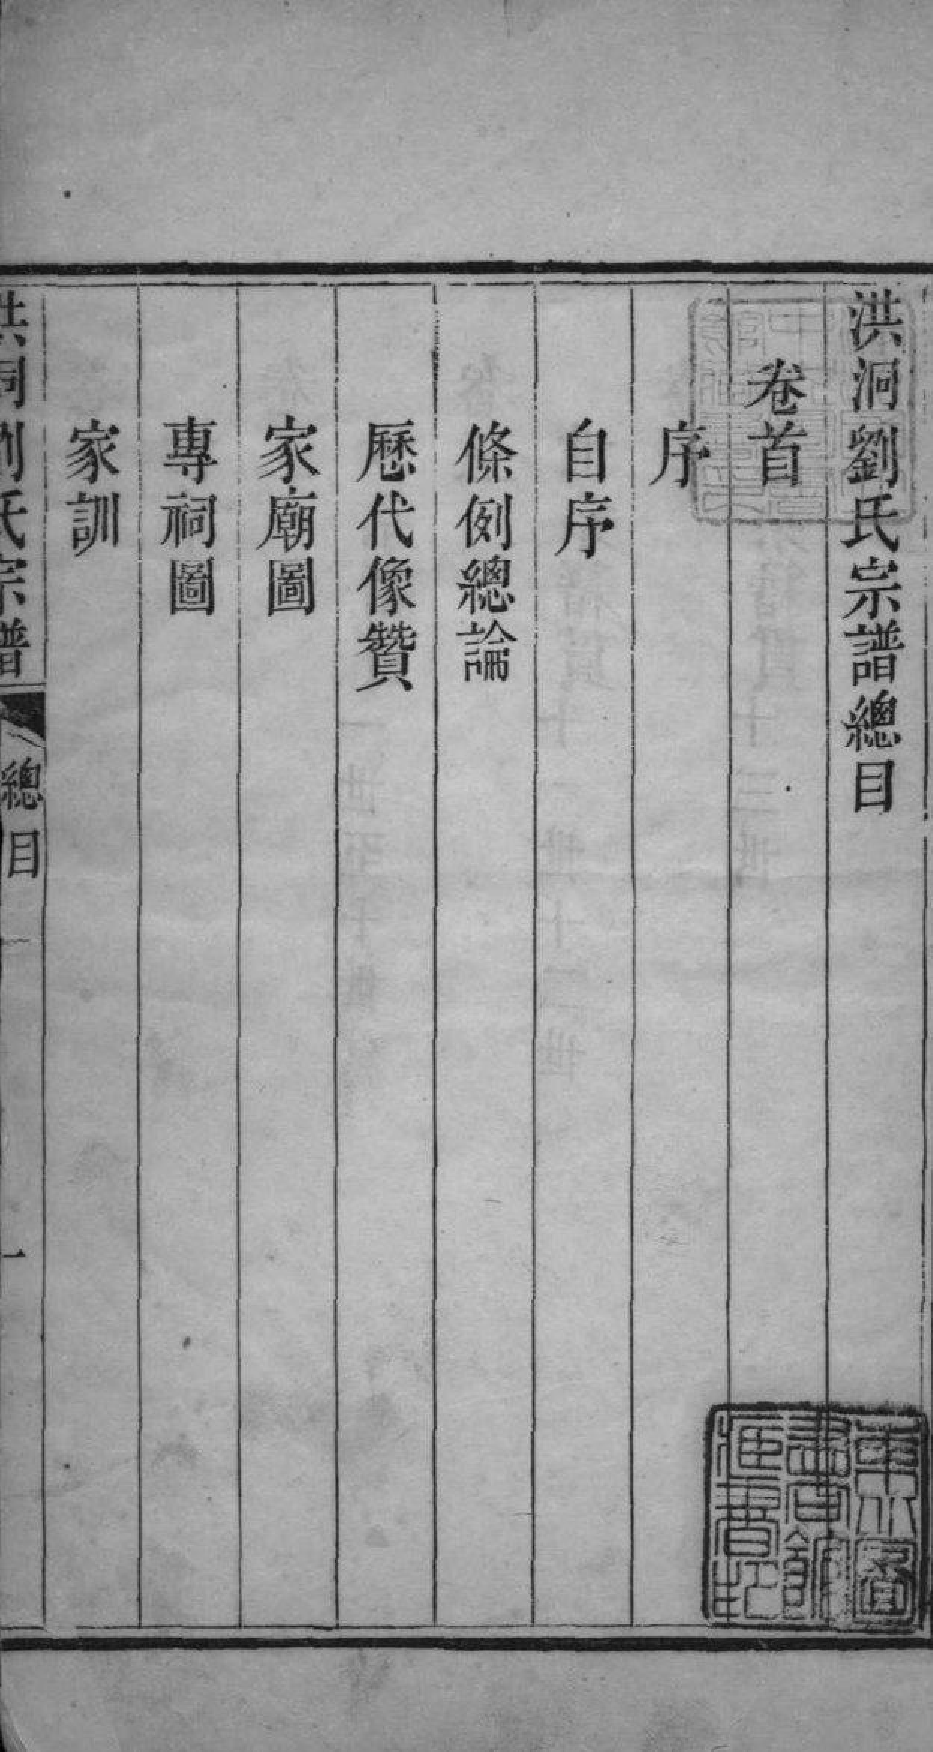 洪洞劉氏宗譜總目
卷首
序
自序
條例總論
歷代像贊
家廟圖
專祠圖
家訓
洪洞劉氏宗譜
總目
一
東方圖書館藏書印